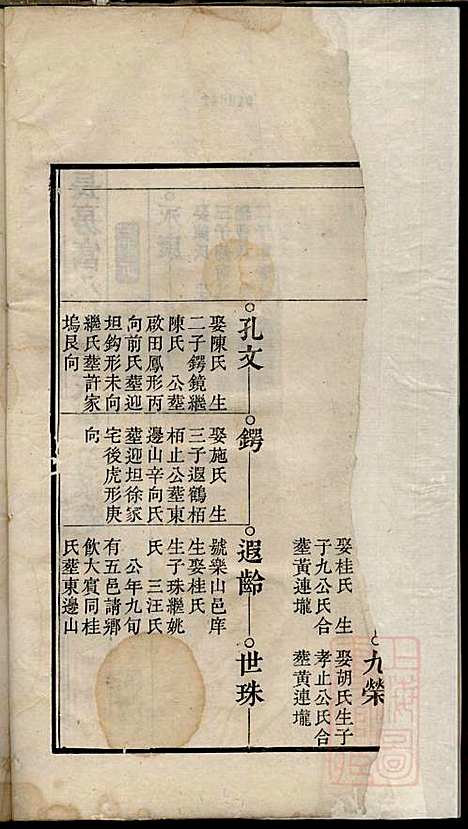 九榮
娶胡氏生子
孝止公氏合
塟黃連壠
娶桂氏 生
子九公氏合
塟黃連壠
孔文
娶陳氏 生
二子鍔鏡繼
陳氏 公塟
啟田鳳形丙
向前氏塟迎
坦鈎形未向
繼氏塟許家
塢艮向
鍔
娶施氏 生
三子遐鶴栢
栢止公塟東
邊山辛向氏
塟迎坦徐家
宅後虎形庚
向
遐齡
號樂山邑庠
生娶桂氏
生子珠繼姚
氏 三汪氏
公年九旬
有五邑請鄉
飲大賓同桂
氏塟東邊山
世珠